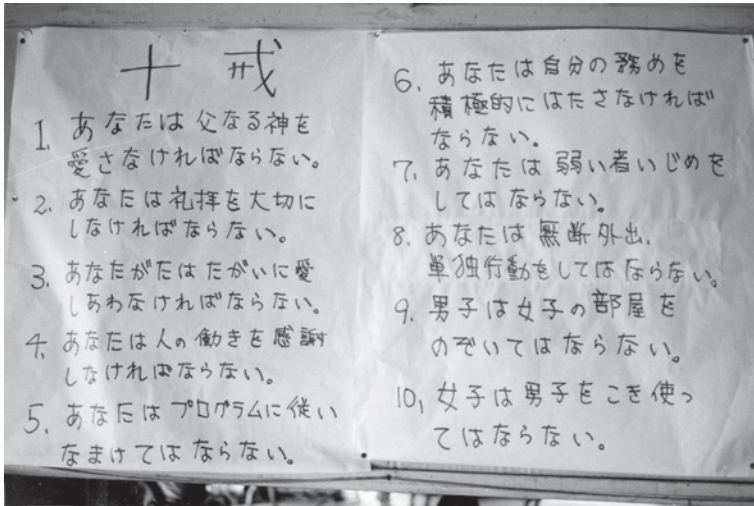 十戒
1. あなたは父なる神を
愛さなければならない。
2. あなたは礼拝を大切に
しなければならない。
3. あなたがたはたがいに愛
しあわなければならない。
4. あなたは人の働きを感謝
しなければならない。
5. あなたはプログラムに従い
なまけてはならない。
6. あなたは自分の務めを
積極的にはたさなければ
ならない。
7. あなたは弱い者いじめを
してはならない。
8. あなたは無断外出、
単独行動をしてはならない。
9. 男子は女子の部屋を
のぞいてはならない。
10, 女子は男子をこき使っ
てはならない。